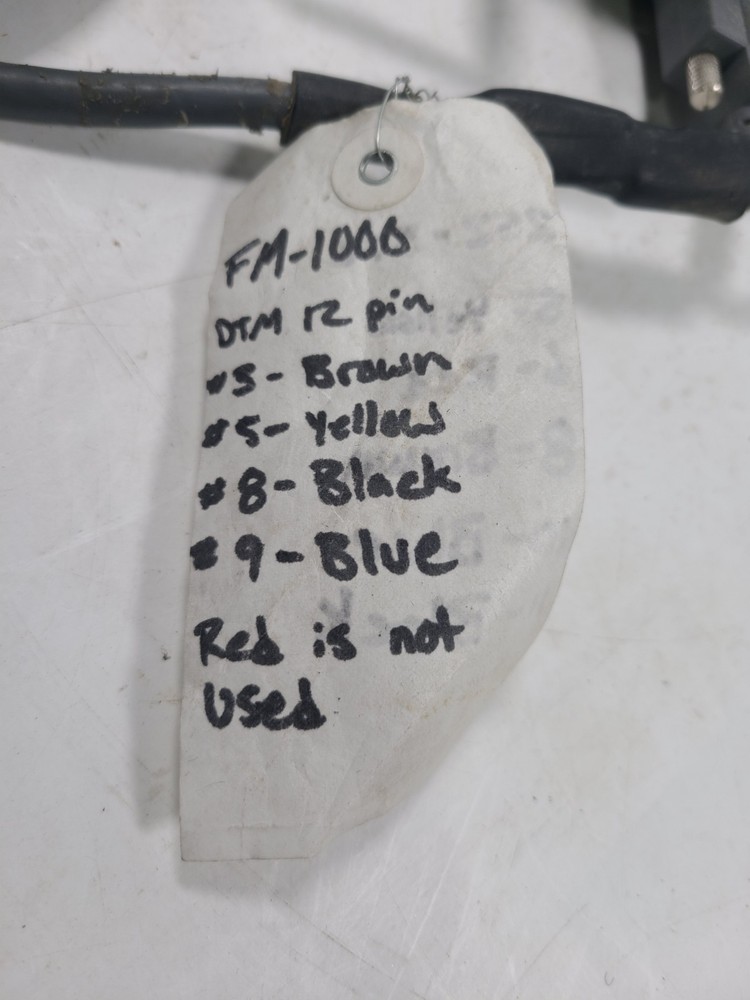 FM-1000
DTM 12 pin
#3- Brown
#5- Yellow
#8- Black
#9- Blue
Red is not
Used